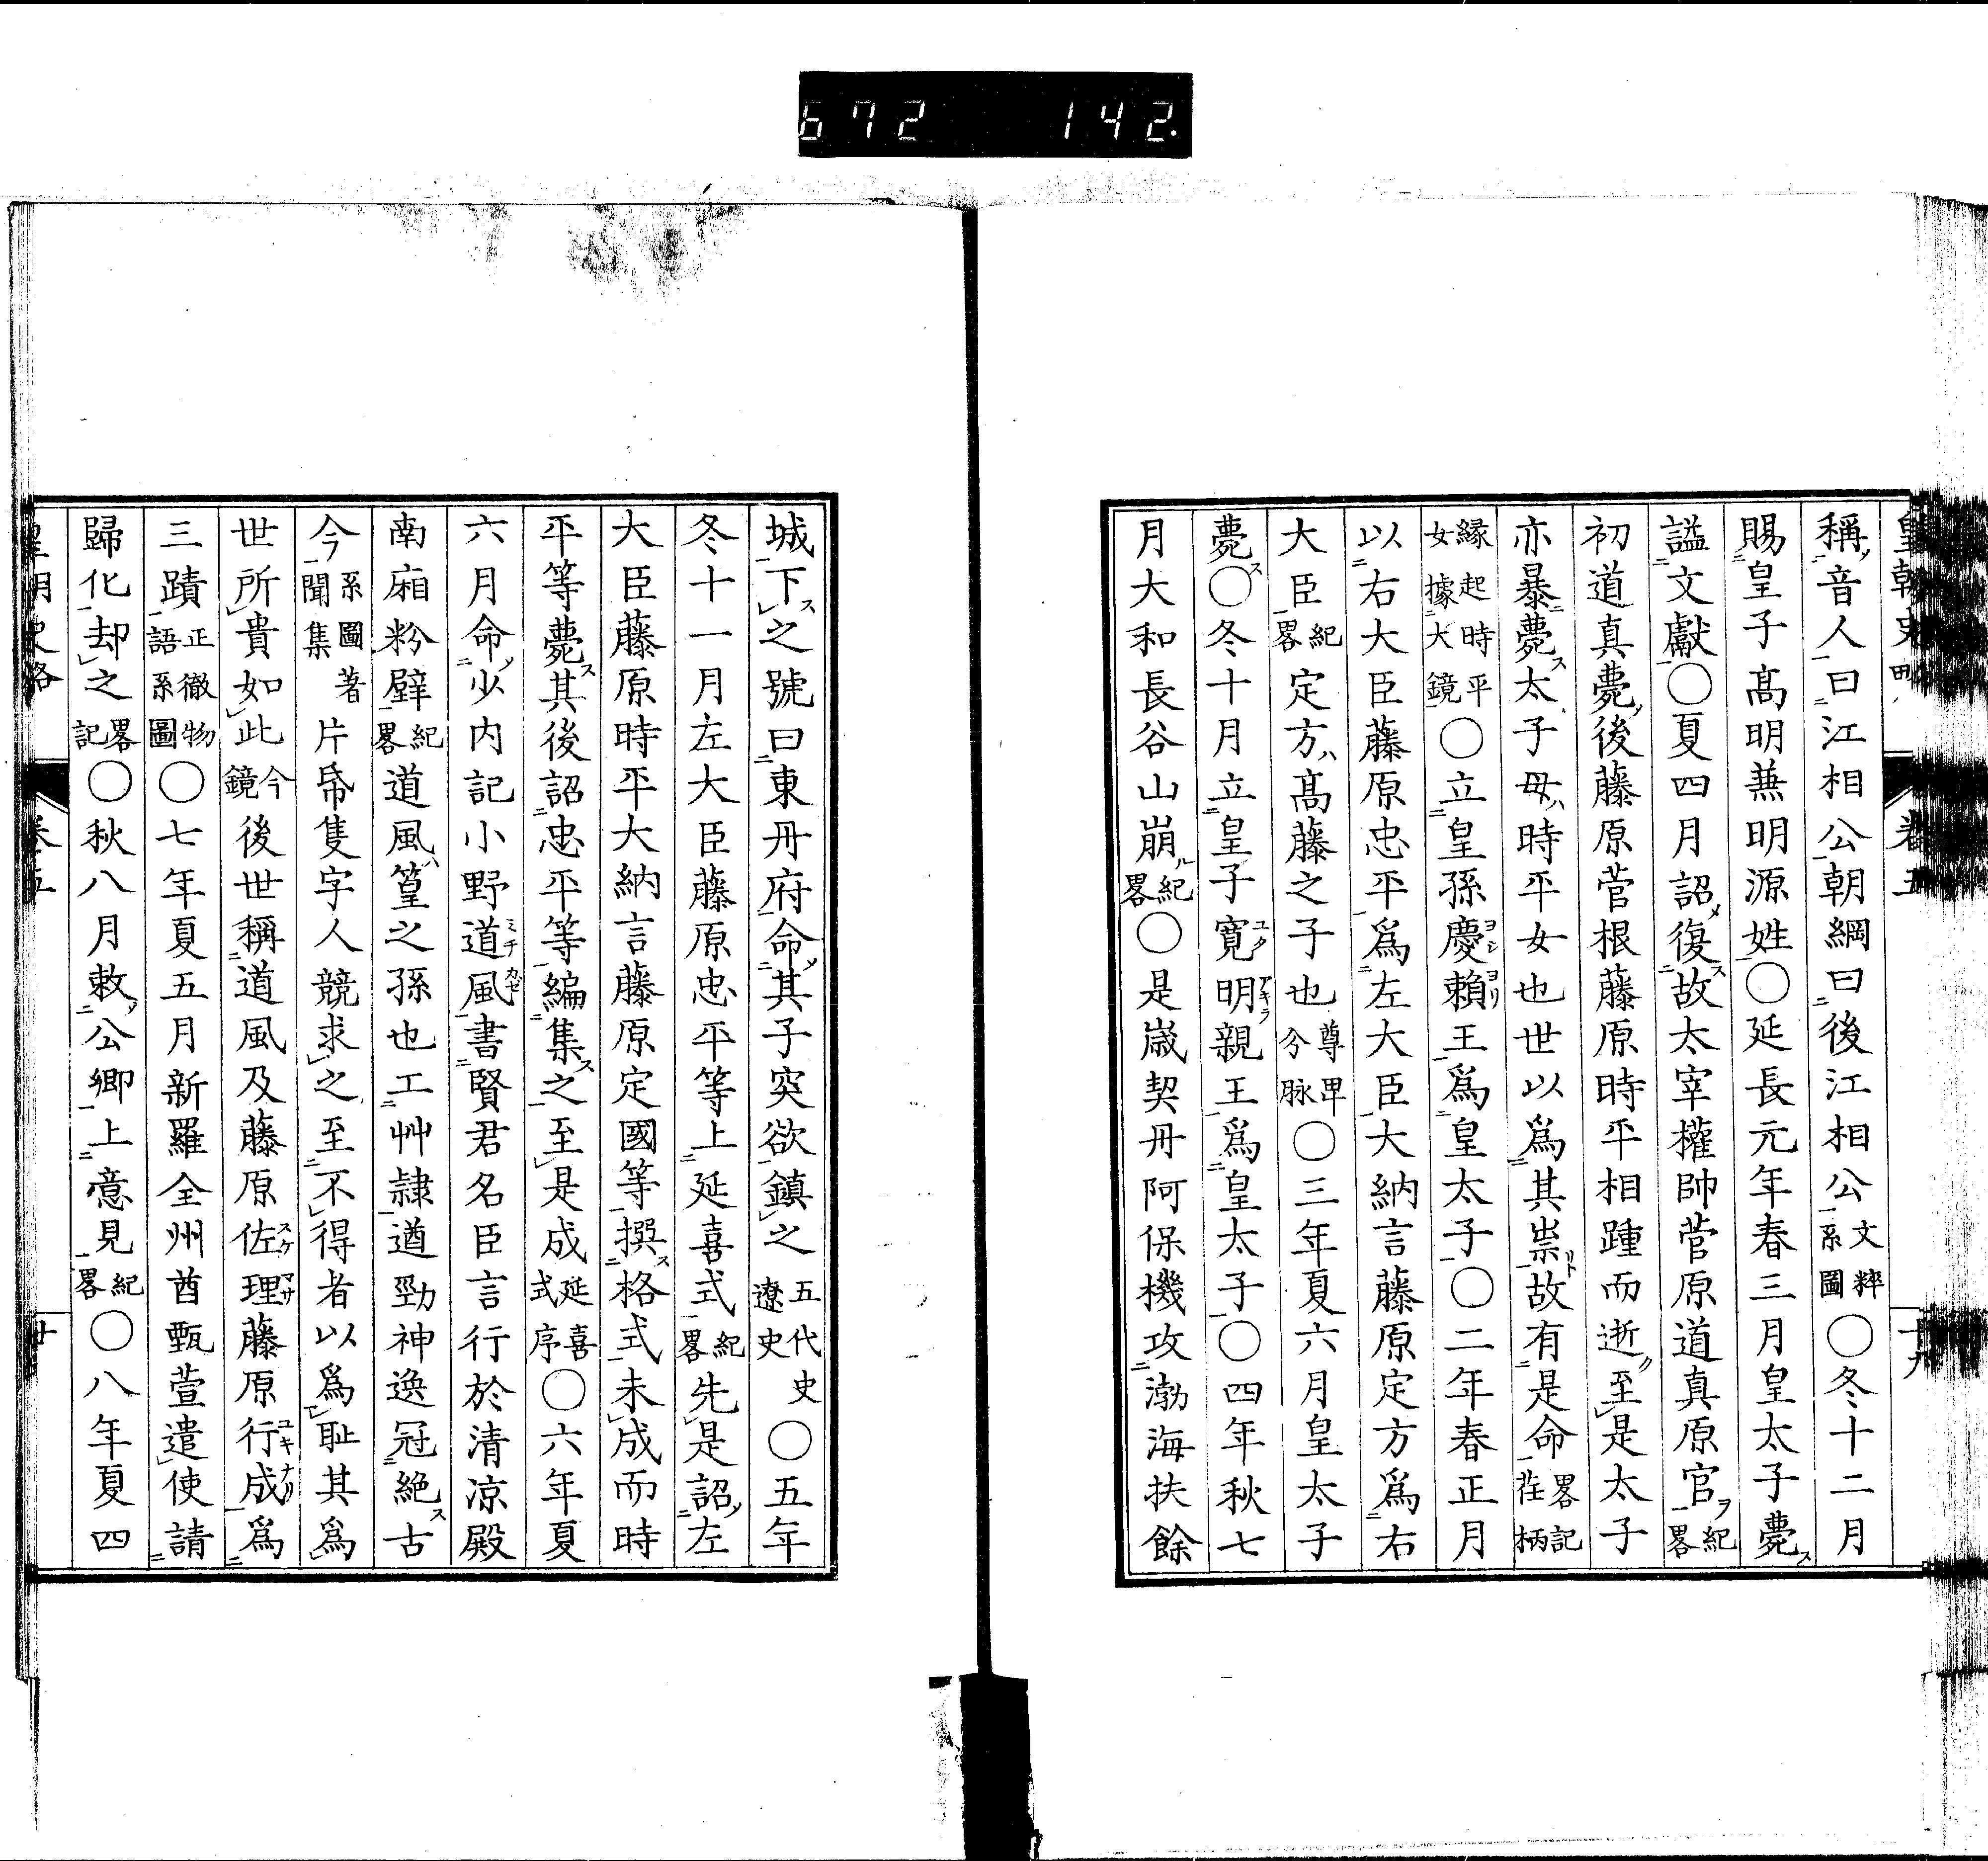 672 142.
皇朝史略 卷五 十九
稱音人曰江相公朝綱曰後江相公文粹系圖〇冬十二月
賜皇子髙明兼明源姓〇延長元年春三月皇太子薨ス
謚文獻〇夏四月詔復故太宰權帥菅原道真原官紀畧
初道真薨後藤原菅根藤原時平相踵而逝至是太子
亦暴薨太子母時平女也世以爲其祟故有是命畧記荏柄
縁起時平女據大鏡〇立皇孫慶ヨシ賴ヨリ王爲皇太子〇二年春正月
以右大臣藤原忠平爲左大臣大納言藤原定方爲右
大臣紀畧定方髙藤之子也尊卑分脉〇三年夏六月皇太子
薨〇冬十月立皇子寬ユタ明アキラ親王爲皇太子〇四年秋七
月大和長谷山崩紀畧〇是歳契丹阿保機攻渤海扶餘
城下之號曰東丹府命其子突欲鎮之五代史遼史〇五年
冬十一月左大臣藤原忠平等上延喜式紀畧先是詔左
大臣藤原時平大納言藤原定國等撰格式未成而時
平等薨其後詔忠平等編集之至是成延喜式序〇六年夏
六月命少内記小野道ミチ風カゼ書賢君名臣言行於清涼殿
南廂粉壁紀畧道風篁之孫也工艸隷遒勁神逸冠絶古
今系圖著聞集片帋隻字人競求之至不得者以爲恥其爲
世所貴如此今鏡後世稱道風及藤原佐スケ理マサ藤原行ユキ成ナリ爲
三蹟正徹物語系圖〇七年夏五月新羅全州酋甄萱遣使請
歸化却之畧記〇秋八月敕公卿上意見紀畧〇八年夏四
皇朝史略 卷五 廿